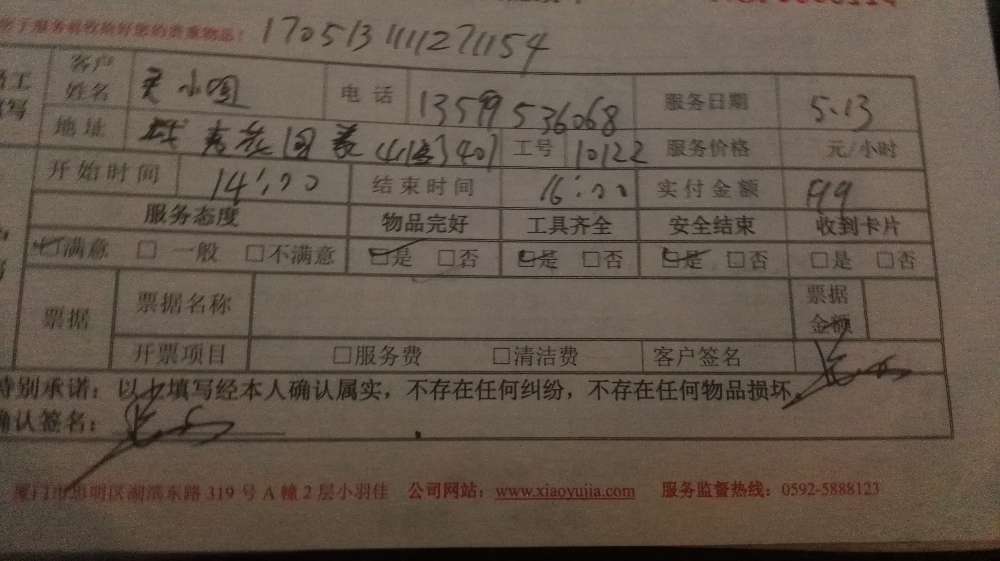 服务前收好您的贵重物品! 1705131111271154
客户姓名 小圆 电话 13599536068 服务日期 5.13
地址 401 工号 10122 服务价格 元/小时
开始时间 14:00 结束时间 16:00 实付金额
服务态度 物品完好 工具齐全 安全结束 收到卡片
满意 □ 一般 □不满意 是 □否 是 □否 是 □否 □是 □否
票据 票据名称 票据金额
开票项目 □服务费 □清洁费 客户签名
特别承诺:以上填写经本人确认属实,不存在任何纠纷,不存在任何物品损坏。
确认签名:
厦门市思明区湖滨东路 319 号 A 幢 2 层小羽佳 公司网站:www.xiaoyujia.com 服务监督热线:0592-5888123